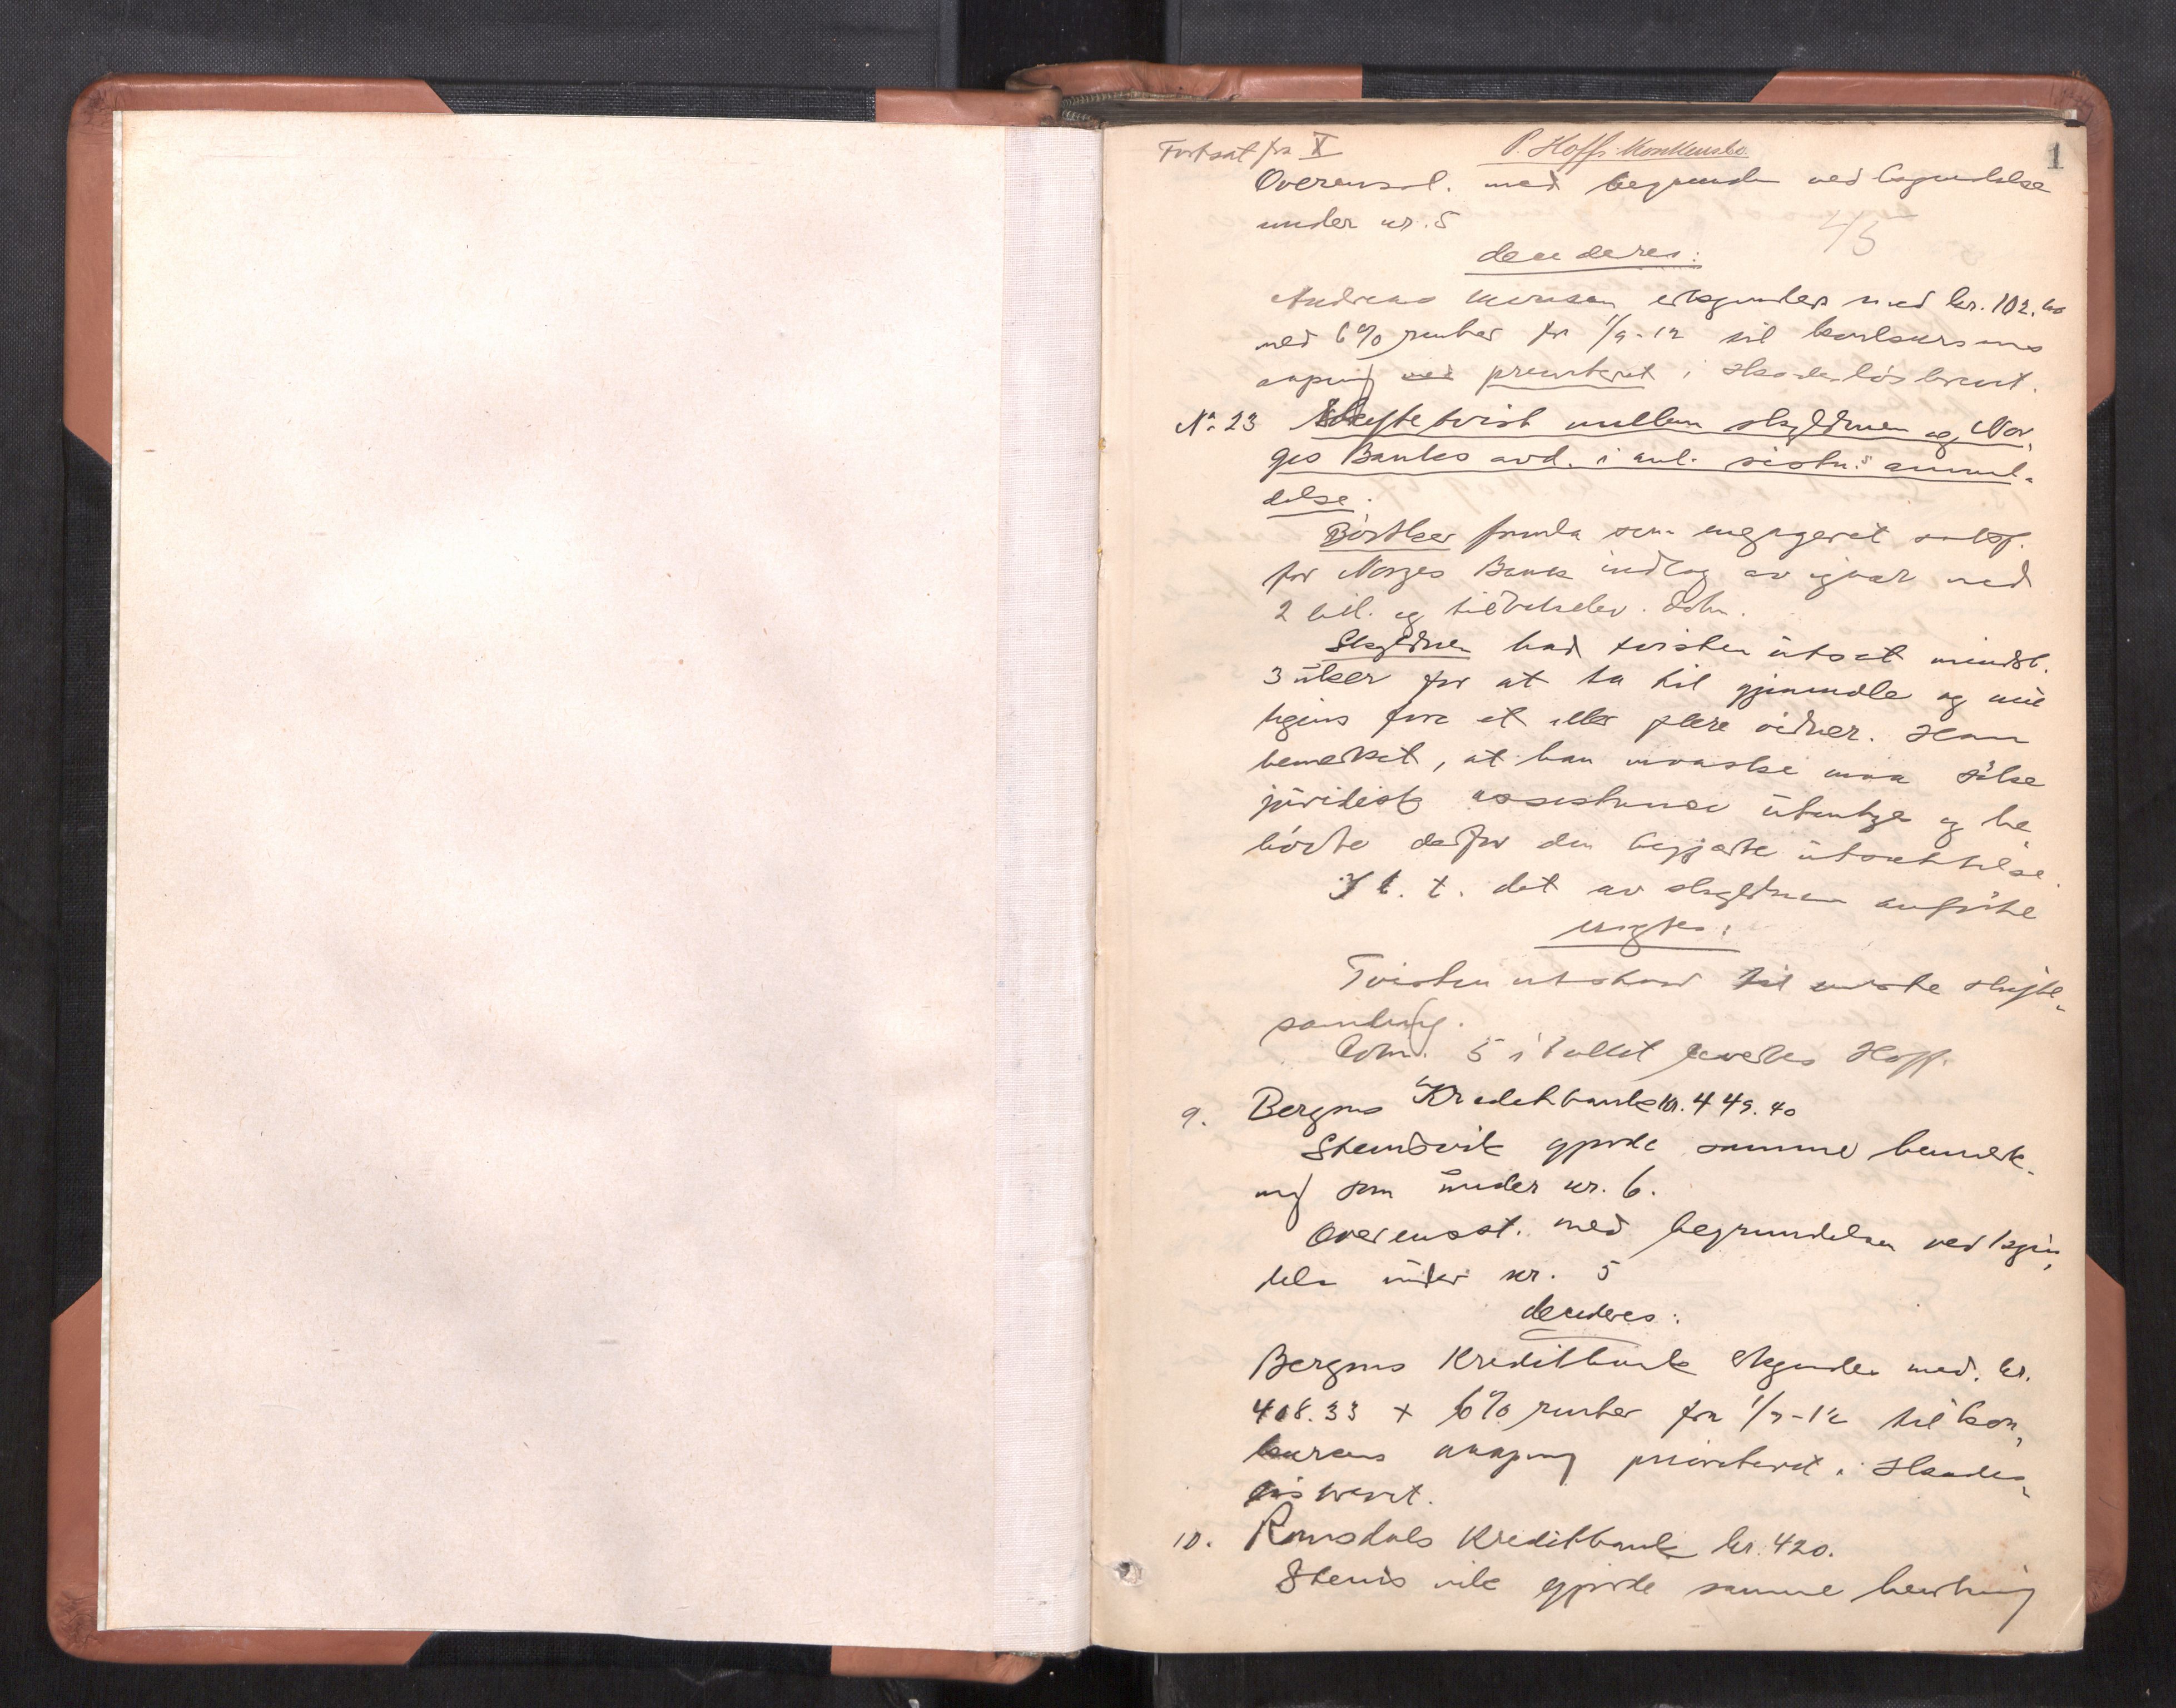 Fortsat fra X P. Hoffs Konkursbo. 1
Overensst. med begrundelse ved begyndelse
under nr. 5
4/5
decideres:
Andreas erkjendes med kr. 102.60
med 6% renter fra 1/9-12 til konkursens
aapning prioritert i Skadeslösbrevet.
No. 23 Skiftetvist mellem skyldneren og Nor,
ges Banks avd. i anl. sistn.s anmel-
delse.
for Norges Bank indlæg av igaar med
2 bil. og tilbehör. Dokn.
Skyldneren bad tvisten utsat mindst
3 uker for at ta til gjenmæle og mu
ligens före et eller flere vidner. Han
bemerket, at han maaske maa söke
juridisk assistanse utenbys og be
hövde derfor den begjærte utsættelse.
I h. t. det av skyldneren anförte
vigtes:
Tvisten utstaar til næste skifte-
samling.
Dokn. 5 i tallet leveres Hoff.
9. Bergens Kreditbank kr. 449.40
Steinsvik gjorde samme bemerk-
ning som under nr. 6.
Overensst. med begrundelsen ved begyn,
delse under nr. 5
decideres:
Bergens Kreditbank erkjendes med kr.
408.33 + 6% renter fra 1/9-12 til kon,
kursens aapning prioritert i Skades-
lösbrevet.
10. Romsdals Kreditbank kr. 420.
Steinsvik gjorde samme bemerkning